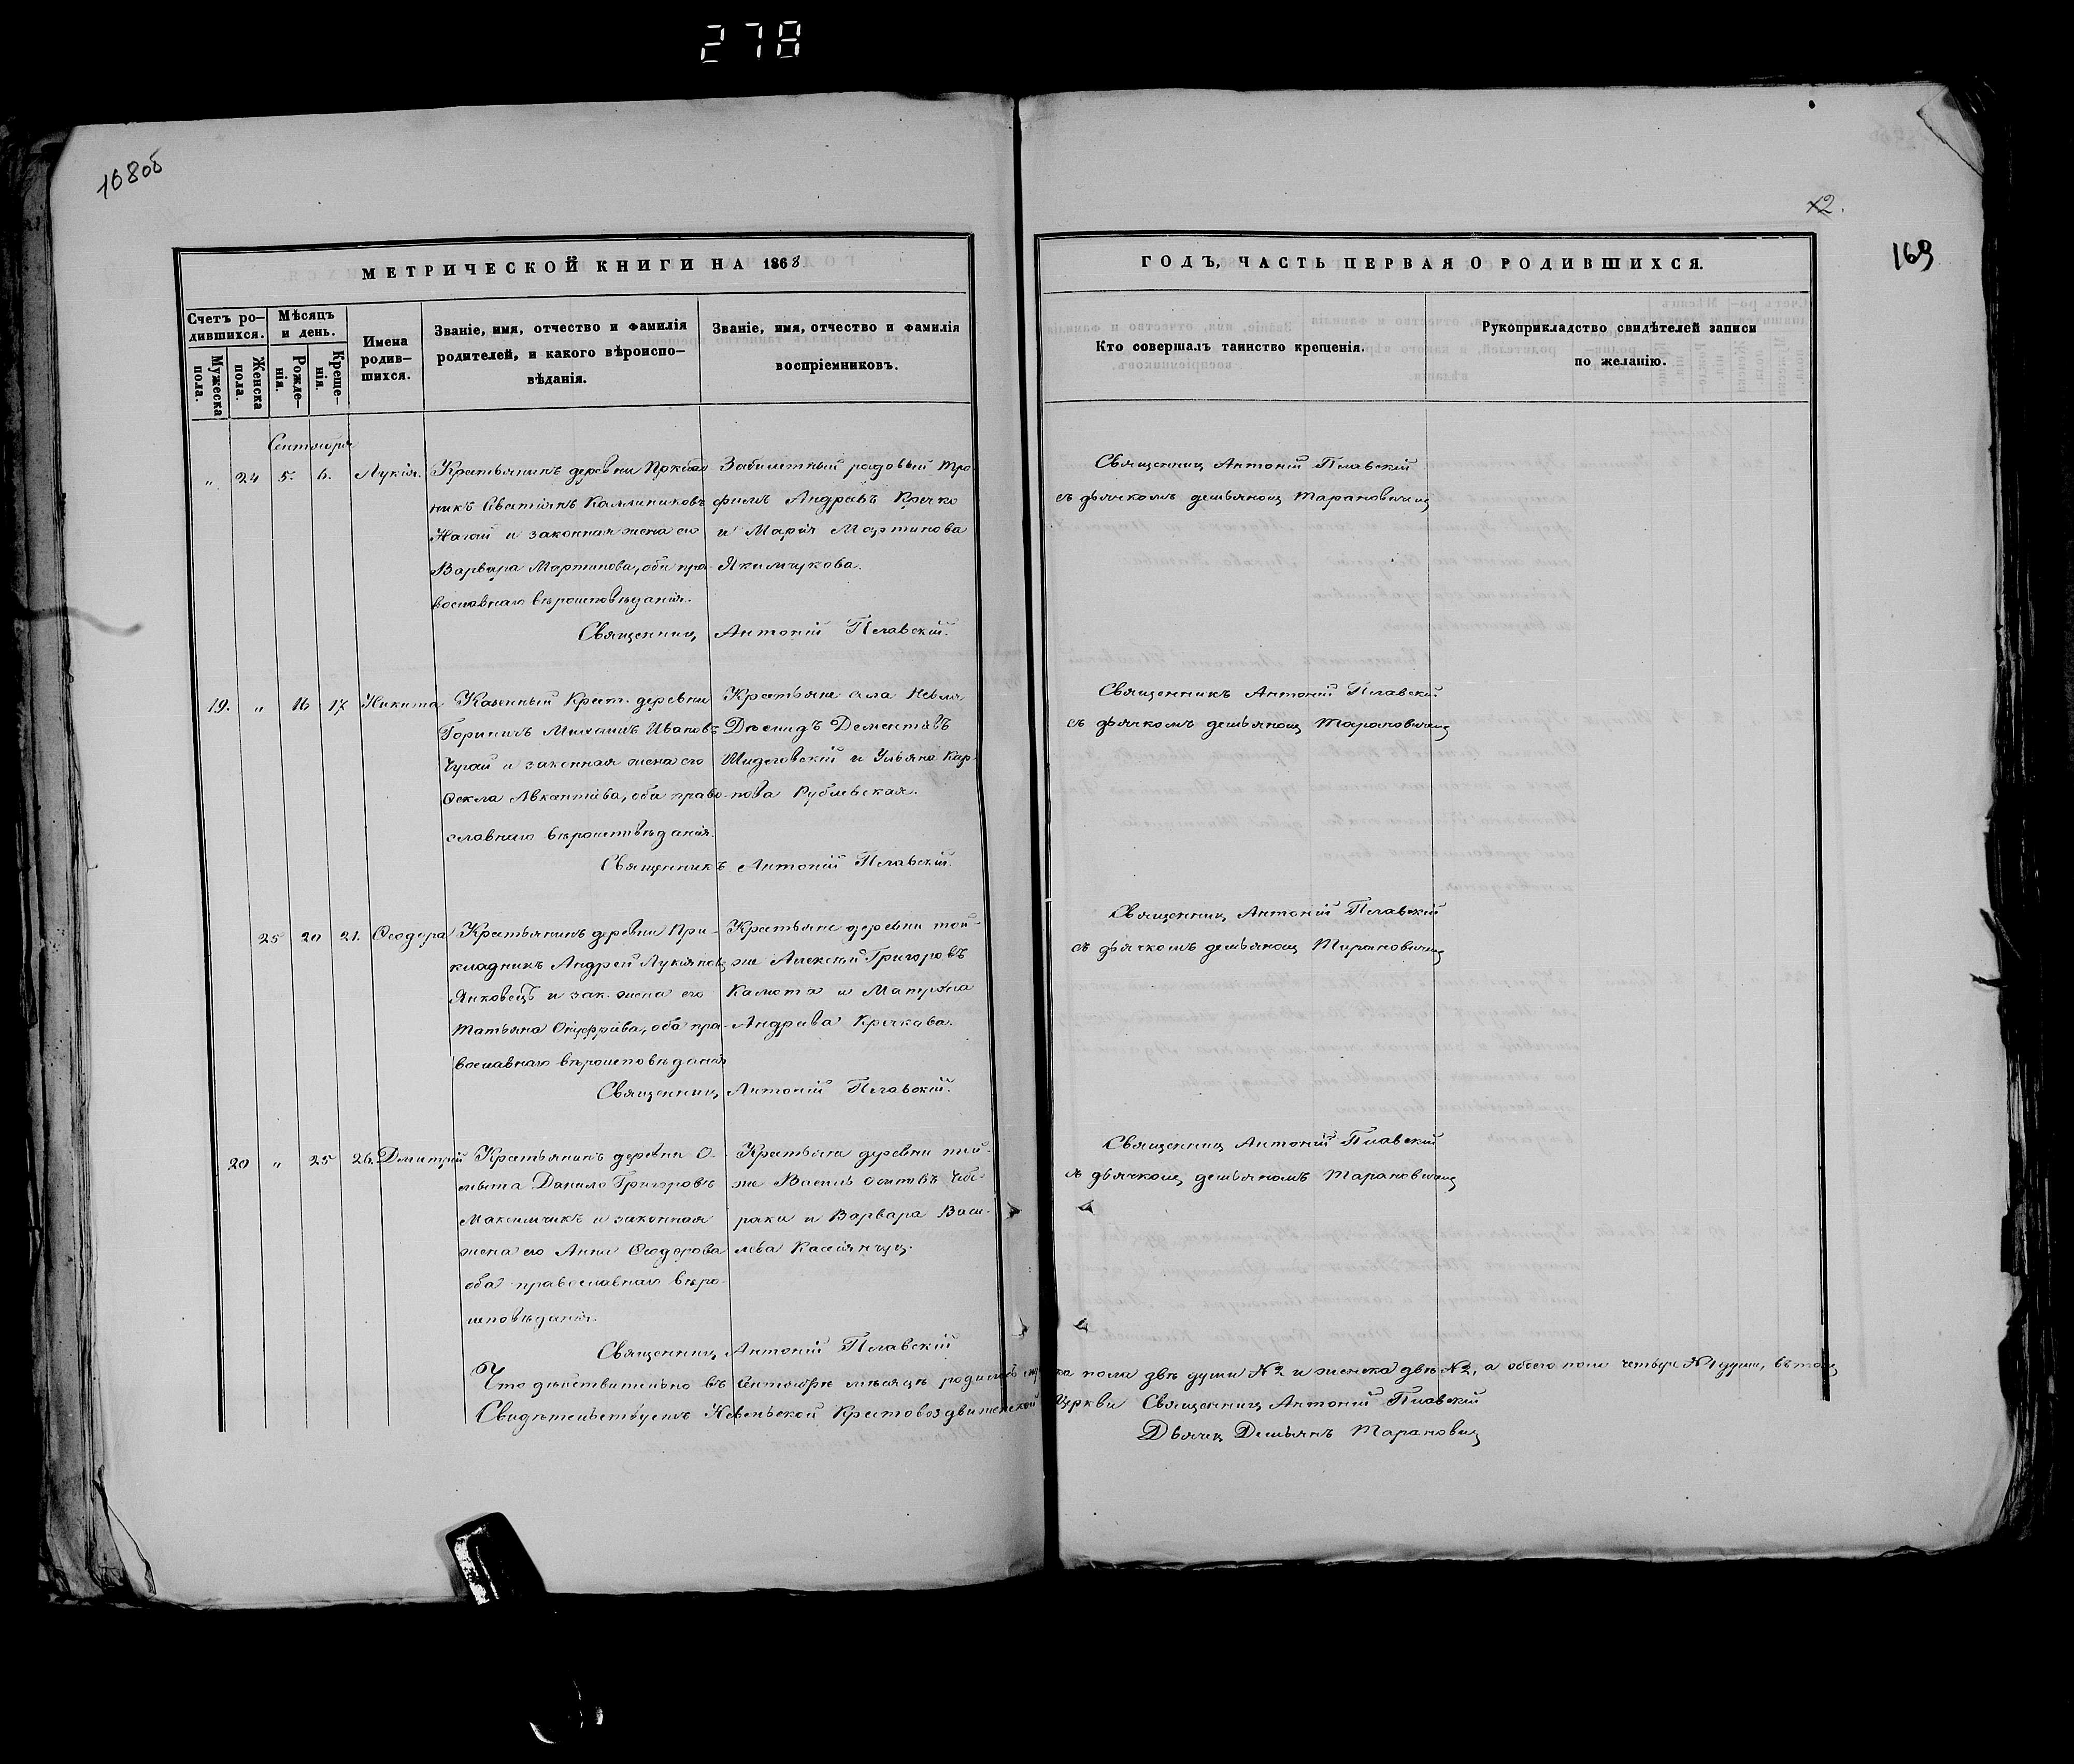 278
168об
х2.
169
МЕТРИЧЕСКОЙ КНИГИ НА 1868
ГОДЪ, ЧАСТЬ ПЕРВАЯ О РОДИВШИХСЯ.
Счетъ ро-
дившихся.
Мужеска
пола.
Женска
пола.
Мѣсяцъ
и день.
Рожде-
нія.
Креще-
нія.
Имена
родив-
шихся.
Званіе, имя, отчество и фамилія
родителей, и какого вѣроиспо-
вѣданія.
Званіе, имя, отчество и фамилія
воспріемниковъ.
Кто совершалъ таинство крещенія.
Рукоприкладство свидѣтелей записи
по желанію.
Сентября
„ 24 5. 6. Лукія.
Крестьянинъ деревни
никъ Каллиниковъ
и законная жена его
Варвара Мартинова, оба пра-
вославнаго вѣроисповѣданія.
Забилетный рядовый Тро
фимъ Андреевъ Кречко
и Марія Мартинова
Якимчукова.
Священникъ Антоній Плавскій.
Священникъ Антоній Плавскій
съ дьячкомъ Демьяномъ Тарановичемъ
19. „ 16 17 Никита
Казенный Крест. деревни
Гориничъ Михаилъ Ивановъ
Чугай и законная жена его
Ѳекла Авксентіева, оба право-
славнаго вѣроисповѣданія.
Крестьяне села Невля
Дементіевъ
и Ульяна Кар-
пова Рублевская.
Священникъ Антоній Плавскій.
Священникъ Антоній Плавскій
съ дьячкомъ Демьяномъ Тарановичемъ
25 20 21. Ѳеодора
Крестьянинъ деревни При-
кладникъ Андрей Лукіяновъ
Янковецъ и зак. жена его
Татьяна Онуфріева, оба пра-
вославнаго вѣроисповѣданія
Крестьяне деревни той-
же Алексѣй Григоровъ
и Матрена
Андреева Кречкова.
Священникъ Антоній Плавскій.
Священникъ Антоній Плавскій
съ дьячкомъ Демьяномъ Тарановичемъ
20 „ 25 26. Димитрій
Крестьянинъ деревни О-
Данило Григоровъ
Максимчикъ и законная
жена его Анна Ѳеодорова
оба православнаго вѣро-
исповѣданія.
Крестьяне деревни той-
же Василь Осиповъ
и Варвара Васи-
лева Кассіянчукъ.
Священникъ Антоній Плавскій
Священникъ Антоній Плавскій
съ дьячкомъ Демьяномъ Тарановичемъ
Что дѣйствительно въ Сентябрѣ мѣсяцѣ родилось пола двѣ души №2 и женска двѣ №2, а обоего пола четыре №4 души, въ томъ
Свидѣтельствуемъ Невельской Крестовоздвиженской Церкви Священникъ Антоній Плавскій
Дьячекъ Демьянъ Тарановичъ